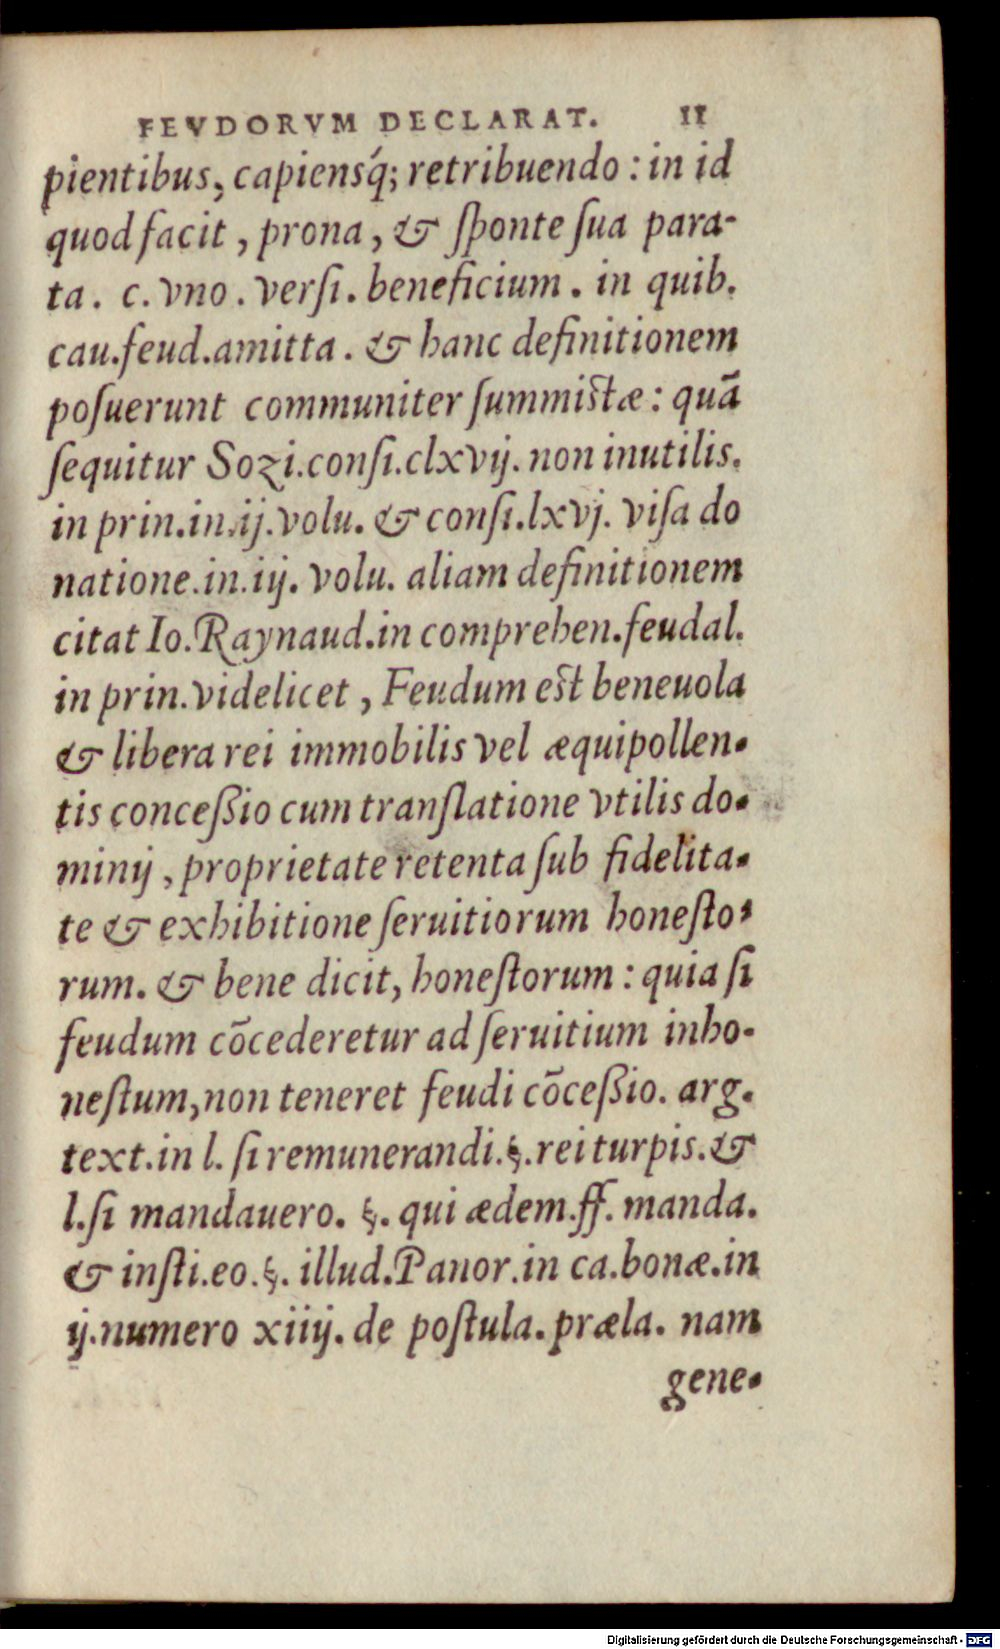 FEVDORVM DECLARAT. 11
pientibus, capiensq́; retribuendo : in id
quod facit , prona , & ſponte ſua para-
ta . c. vno . verſi. beneficium . in quib.
cau.feud.amitta . & hanc definitionem
poſuerunt communiter ſummistæ : quã
ſequitur Sozi.conſi.clxvij. non inutilis.
in prin.in.ij.volu. & conſi.lxvj. viſa do
natione.in.iij. volu. aliam definitionem
citat Io.Raynaud.in comprehen.feudal.
in prin.videlicet , Feudum est beneuola
& libera rei immobilis vel æquipollen-
tis conceßio cum tranſlatione vtilis do-
minij , proprietate retenta ſub fidelita-
te & exhibitione ſeruitiorum honeſto-
rum. & bene dicit, honeſtorum : quia ſi
feudum cõcederetur ad ſeruitium inho-
neſtum,non teneret feudi cõceßio. arg.
text.in l. ſi remunerandi.§.rei turpis.&
l.ſi mandauero. §. qui ædem.ff. manda.
& inſti.eo.§. illud.Panor.in ca.bonæ.in
ij.numero xiiij. de poſtula.præla. nam
gene-
Digitalisierung gefördert durch die Deutsche Forschungsgemeinschaft - DFG